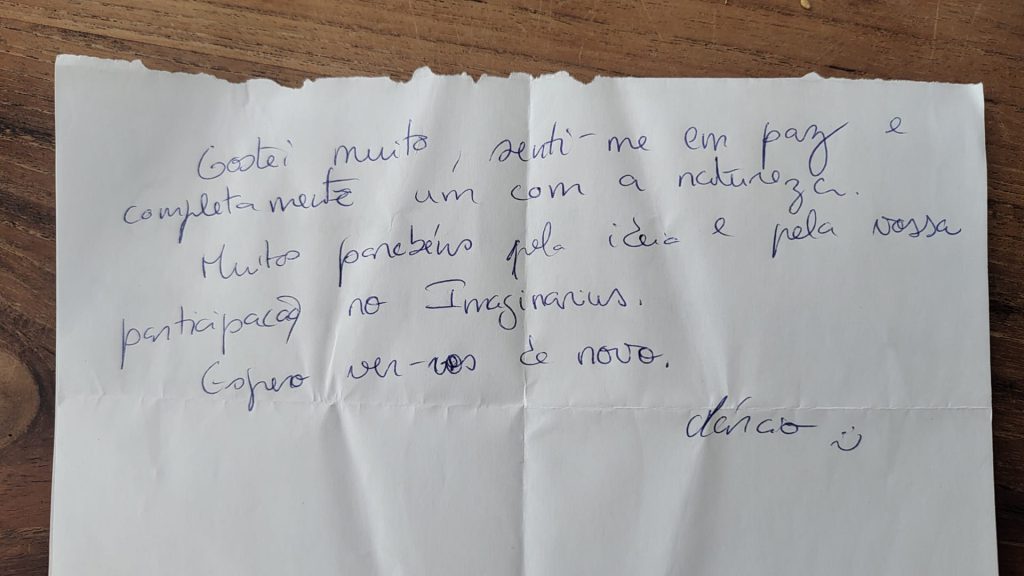 Gostei muito, senti-me em paz e
completamente um com a natureza.
Muitos parabéns pela ideia e pela vossa
participação no Imaginarius.
Espero ver-vos de novo.
:)